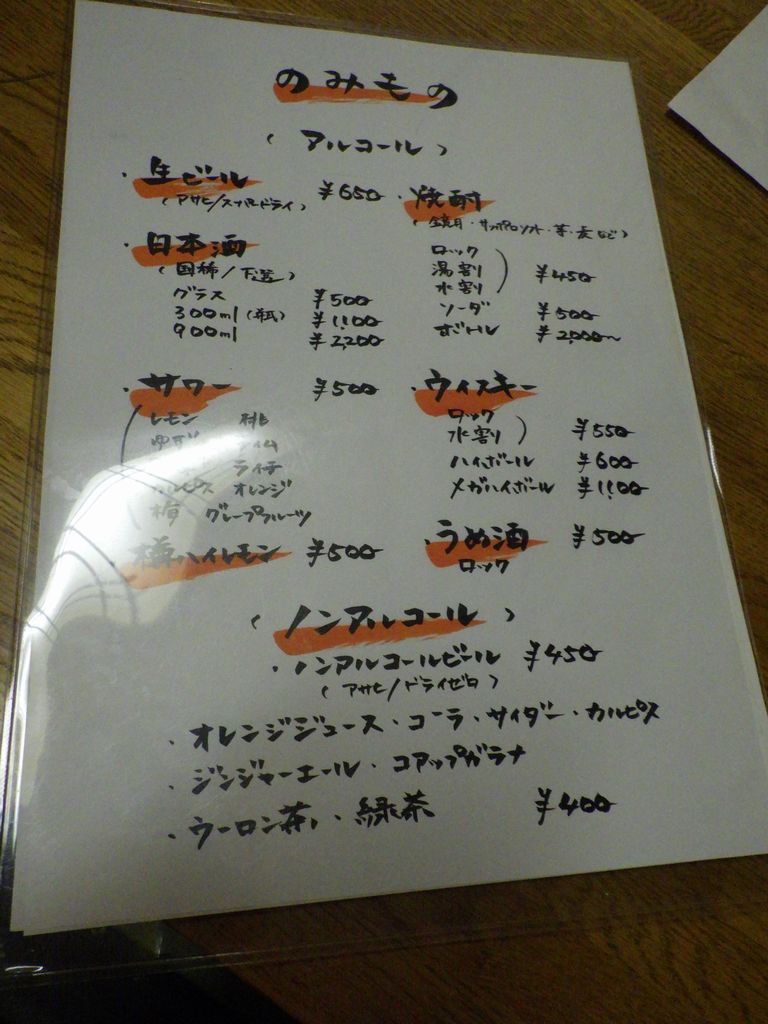 のみもの
(アルコール)
・生ビール ¥650
(アサヒ/スーパードライ)
・日本酒
(国稀/下選)
グラス ¥500
300ml(瓶) ¥1,100
900ml ¥2,200
・サワー ¥500
レモン 桃
ゆず ライム
ライチ
カルピス オレンジ
梅 グレープフルーツ
・樽ハイレモン ¥500
・焼酎
(鏡月・サッポロソフト・芋・麦など)
ロック
湯割
水割
¥450
ソーダ ¥500
ボトル ¥2,000〜
・ウィスキー
ロック
水割
¥550
ハイボール ¥600
メガハイボール ¥1,100
・うめ酒 ¥500
ロック
(ノンアルコール)
・ノンアルコールビール ¥450
(アサヒ/ドライゼロ)
・オレンジジュース・コーラ・サイダー・カルピス
・ジンジャーエール・コアップガラナ
・ウーロン茶・緑茶 ¥400